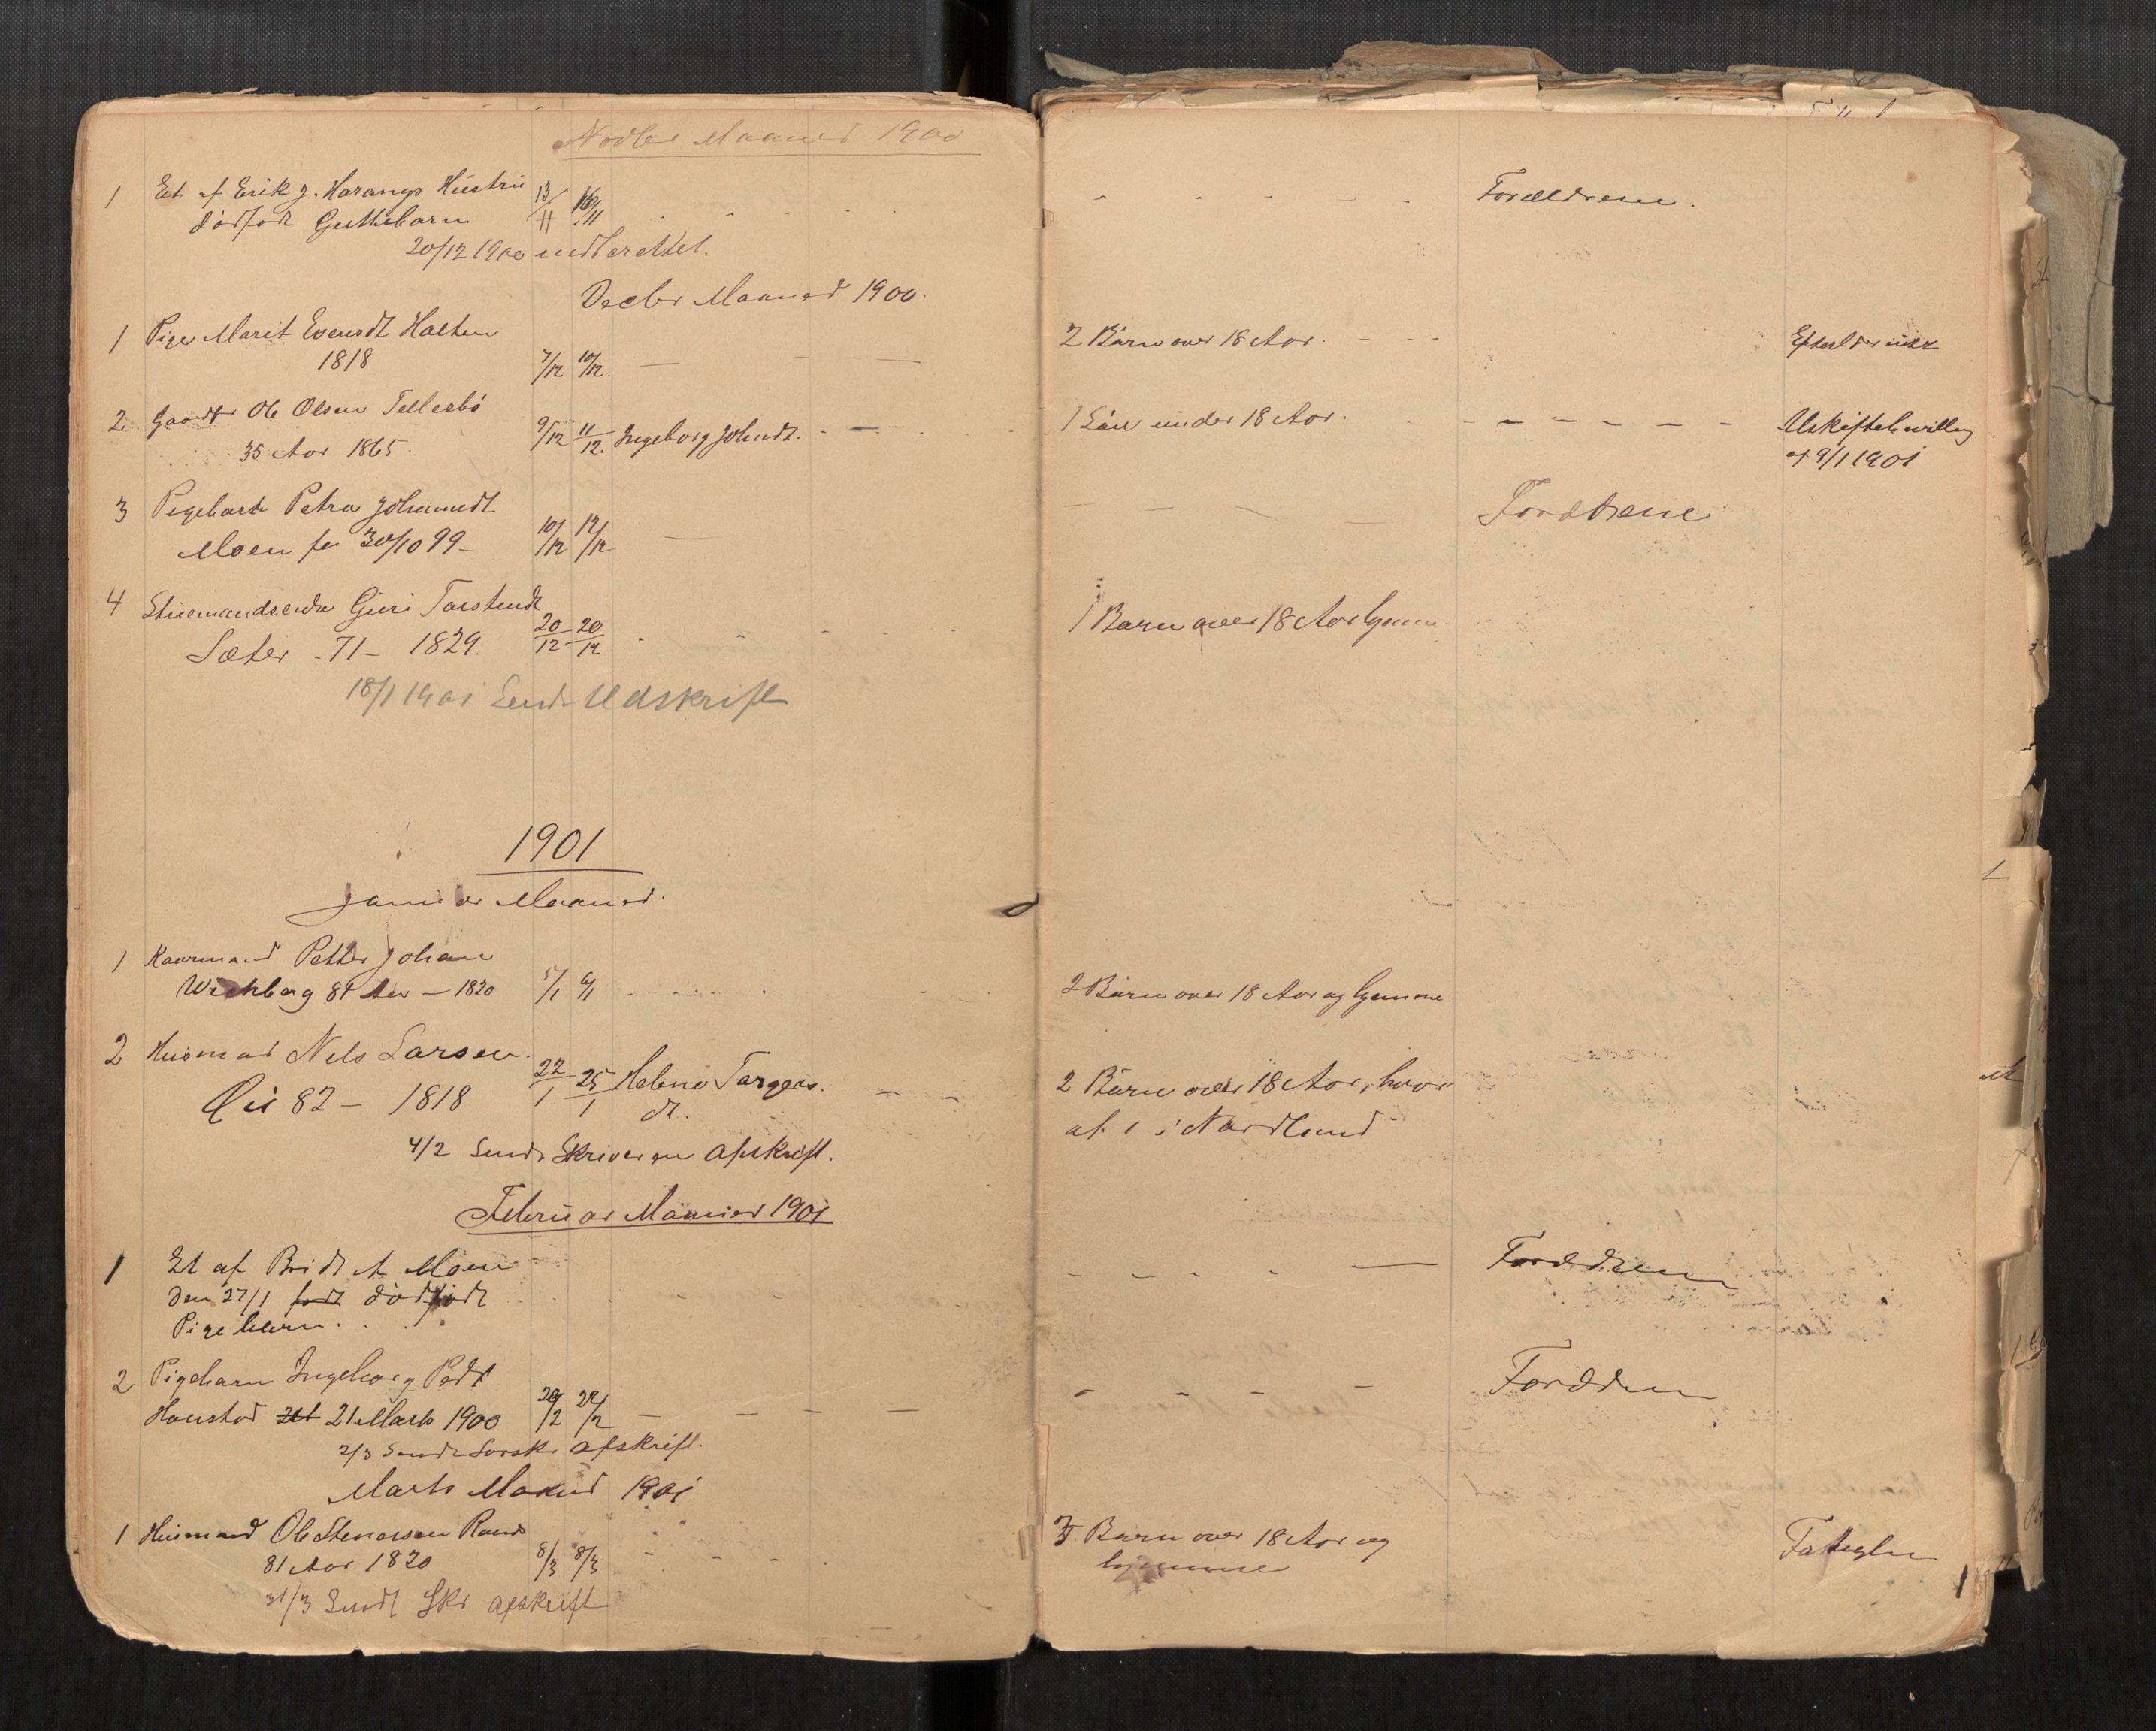 Novbr Maaned 1900
1 Et af Erik J. Harangs Hustru 13/11 16/11 Forældrene.
dødfødt Guttebarn
20/12 1900 indberettet.
Decbr Maaned 1900.
1 Pige Marit Evensdt Halten 2 Børn over 18 Aar.
1818 7/12 10/12.
2 Gaardbr Ole Olsen Tellesbø 1 Søn under 18 Aar.
35 Aar 1865. 9/12 11/12. Ingeborg Johnsdt. af 9/1 1901
3 Pigebarn Petra Johannesdt Forældrene
Moen fø 30/10 99 10/12 12/12
4 Guri Torstensdt 1 Barn over 18 Aar hjemme.
Sæter 71 - 1829. 20/12 20/12
18/1 1901 Sendt Udskrift
1901
Januar Maaned.
1 Kaarmand Petter Johan
81 Aar - 1820 5/1 6/1 2 Børn over 18 Aar og hjemme.
2 Husmand Nils Larsen 22/1 25/1 Helene Torgers. 2 Børn over 18 Aar, hvor
Øis 82 - 1818 dt. af 1 i Nordland
4/2 Sendt Skriveren Afskrift.
Februar Maaned 1901
1 Et af Moen Forældrene
den 27/1 født dødfødt
Pigebarn.
2 Pigebarn Ingeborg Pedt Forældrene
Haustad 21 Marts 1900 20/2 22/2
2/3 Sendt Sorsk. Afskrift.
Marts Maaned 1901
1 Husmand Ole Stenersen Rand 3 Børn over 18 Aar og
81 Aar 1820 8/3 8/3 hjemme
31/3 Sendt Skr Afskrift